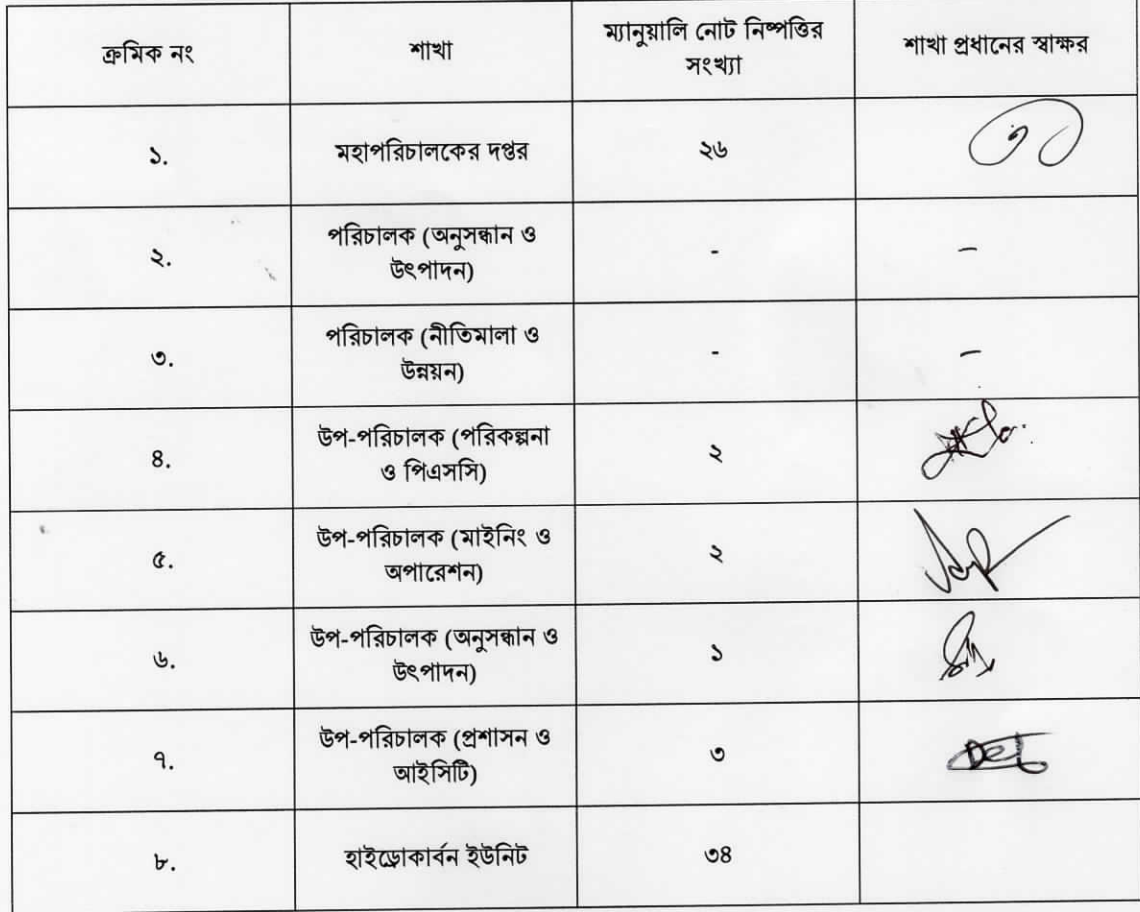 ক্রমিক নং
শাখা
ম্যানুয়ালি নোট নিষ্পত্তির
সংখ্যা
শাখা প্রধানের স্বাক্ষর
১.
মহাপরিচালকের দপ্তর
২৬
২.
পরিচালক (অনুসন্ধান ও
উৎপাদন)
-
–
৩.
পরিচালক (নীতিমালা ও
উন্নয়ন)
-
–
৪.
উপ-পরিচালক (পরিকল্পনা
ও পিএসসি)
২
৫.
উপ-পরিচালক (মাইনিং ও
অপারেশন)
২
৬.
উপ-পরিচালক (অনুসন্ধান ও
উৎপাদন)
১
৭.
উপ-পরিচালক (প্রশাসন ও
আইসিটি)
৩
৮.
হাইড্রোকার্বন ইউনিট
৩৪